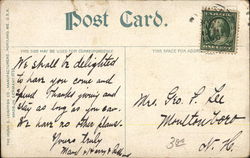 Post Card.
THIS SIDE MAY BE USED FOR CORRESPONDENCE
THIS SPACE FOR ADDRESS
We shall be delighted
to have you come and
spend Thanksgiving and
stay as long as you can.
We have no other plans.
Yours truly
Mrs Geo. P. Lee
Moultonboro
N. H.